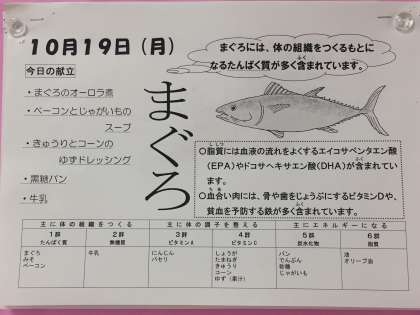 10月19日（月）
今日の献立
・まぐろのオーロラ煮
・ベーコンとじゃがいもの
スープ
・きゅうりとコーンの
ゆずドレッシング
・黒糖パン
・牛乳
まぐろ
まぐろには、体の組織をつくるもとに
なるたんぱく質が多く含まれています。
〇脂質には血液の流れをよくするエイコサペンタエン酸
（EPA）やドコサヘキサエン酸（DHA）が含まれてい
ます。
〇血合い肉には、骨や歯をじょうぶにするビタミンDや、
貧血を予防する鉄が多く含まれています。
主に体の組織をつくる 主に体の調子を整える 主にエネルギーになる
1群 2群 3群 4群 5群 6群
たんぱく質 無機質 ビタミンA ビタミンC 炭水化物 脂質
まぐろ 牛乳 にんじん しょうが パン 油
みそ パセリ たまねぎ でんぷん オリーブ油
ベーコン きゅうり 砂糖
コーン じゃがいも
ゆず（果汁）